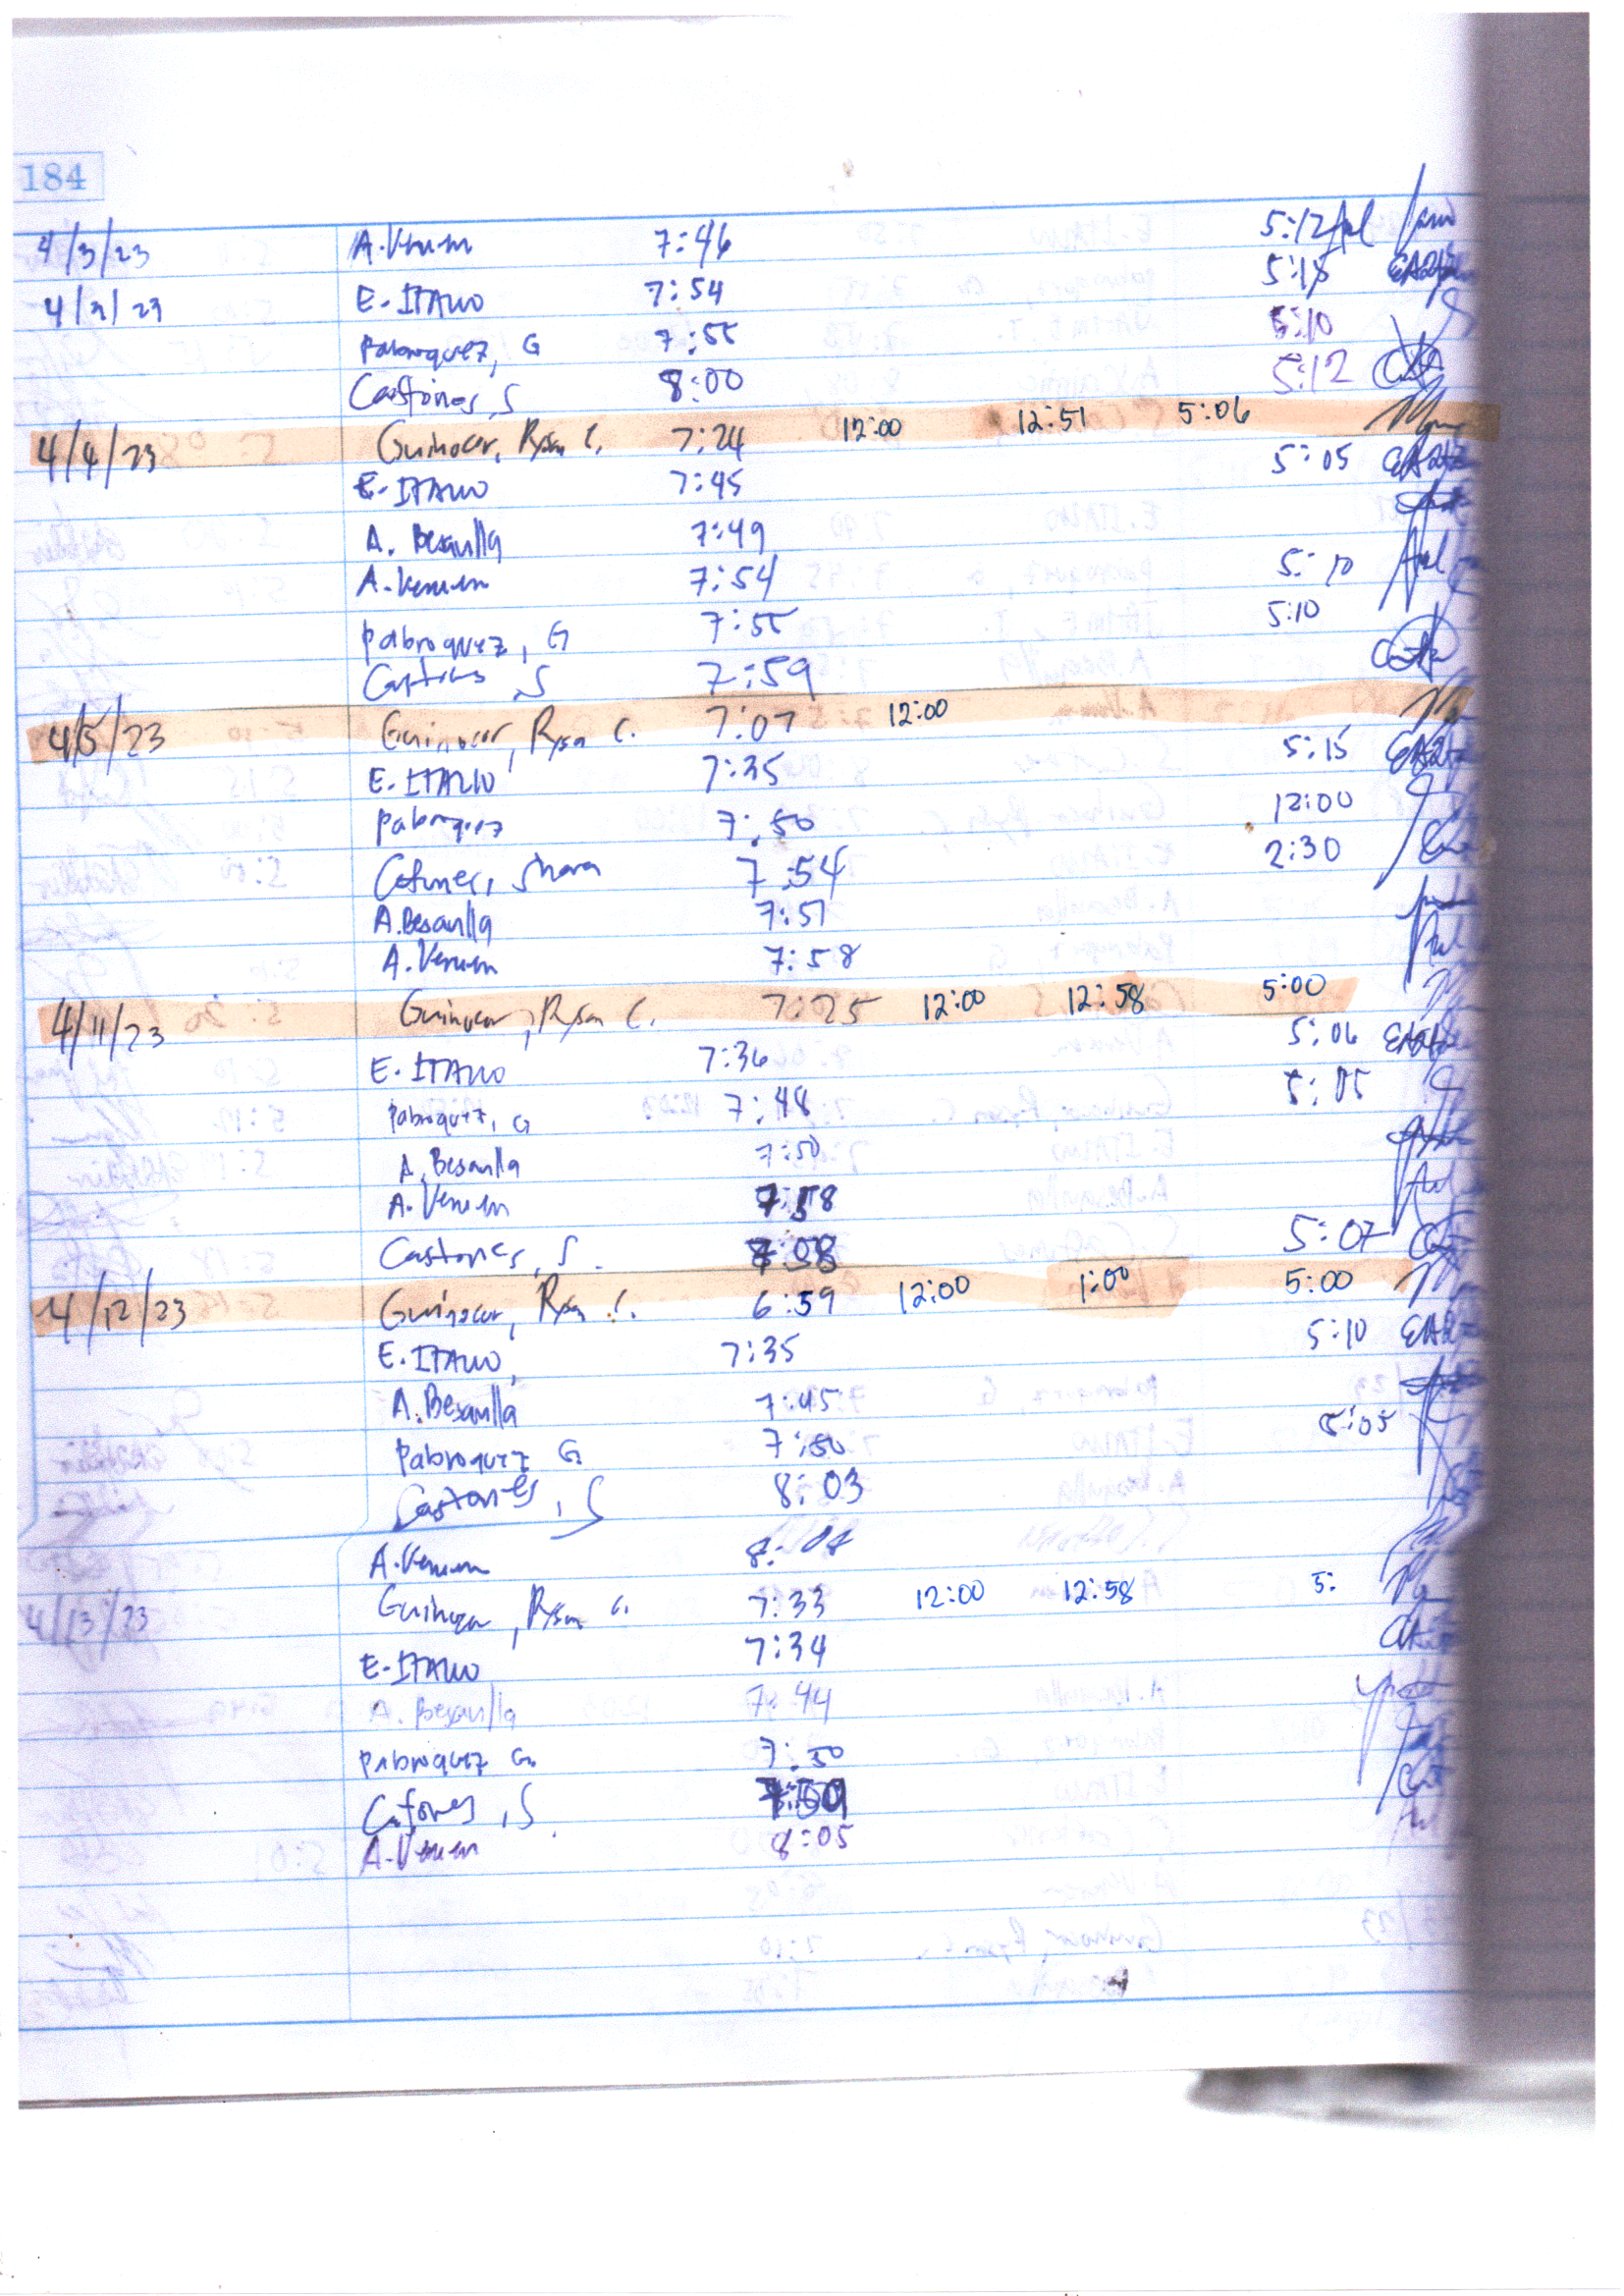 184
4/3/23 A. Venum 7:46 5:12
4/3/23 E. ITALIO 7:54 5:18
Pabroquez, G 7:55 5:10
Castones, S 8:00 5:12
4/4/23 Guinocor, Rysa C. 7:24 12:00 12:51 5:06
E. ITALIO 7:45 5:05
A. Besanlla 7:49
A. Venum 7:54 5:10
Pabroquez, G 7:55 5:10
Castones, S 7:59
4/5/23 Guinocor, Rysa C. 7:07 12:00
E. ITALIO 7:35 5:15
Pabroquez 7:50 12:00
Castones, Shara 7:54 2:30
A. Besanlla 7:57
A. Venum 7:58
4/11/23 Guinocor, Rysa C. 7:25 12:00 12:58 5:00
E. ITALIO 7:36 5:06
Pabroquez, G 7:48 5:05
A. Besanlla 7:50
A. Venum 7:58
Castones, S. 5:07
4/12/23 Guinocor, Rysa C. 6:59 12:00 1:00 5:00
E. ITALIO, 7:35 5:10
A. Besanlla 7:45
Pabroquez G 7:50 5:05
Castones, S 8:03
A. Venum
4/13/23 Guinocor, Rysa C. 7:33 12:00 12:58 5:
E. ITALIO 7:34
A. Besanlla 7:44
Pabroquez G. 7:50
Castones, S. 7:59
A. Venum 8:05